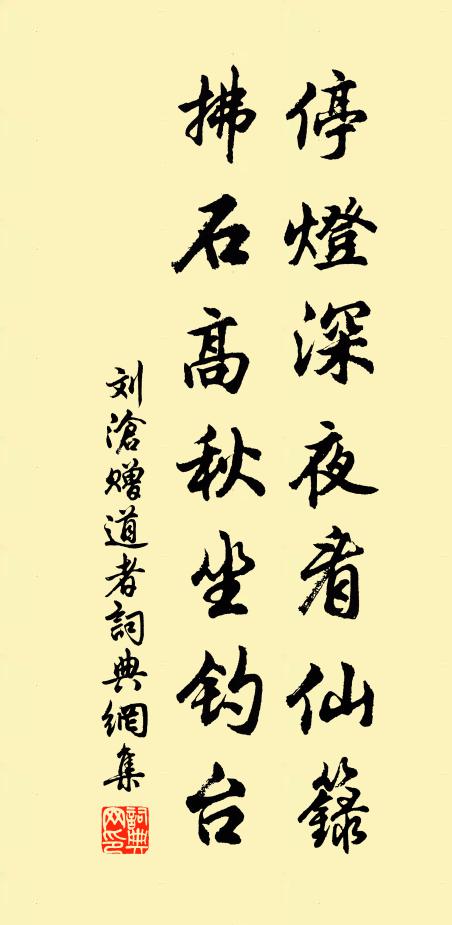 停燈深夜看仙籙
拂石高秋坐钓台
刘滄赠道者詞典網集
詞典网印